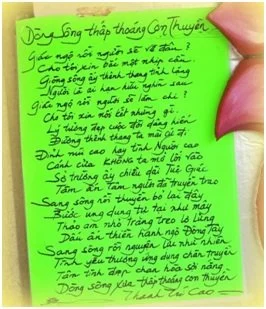 Dòng Sông thấp thoáng Con Thuyền
Giác ngộ rồi người sẽ về đâu?
Cho tôi xin bắc một nhịp cầu.
Giòng sông ấy thênh thang tĩnh lặng
Người là ai hạn hữu nghìn sau
Giác ngộ rồi người sẽ làm chi?
Cho tôi xin một bất những gì.
Lý tưởng đẹp cuộc đời dâng hiến
Đường thênh thang ta mãi cứ đi.
Đỉnh núi cao hay tính Người cao
Cánh cửa KHÔNG ta mở lối vào
Sở trường ấy chiều dài Tuệ Giác
Tâm ấn Tâm người đã truyền trao
Sang sông rồi thuyền bỏ lại đây
Bước ung dung tự tại như mây
Thao am nhỏ trăng treo lơ lửng
Dấu ấn thiền hành ngộ Đông Tây
Sang sông rồi nguyện lưu nhủ nhiên
Tình yêu thương ứng dụng chân truyền
Tâm tình đẹp chan hòa sỏi nắng
Dòng sông xưa thấp thoáng con thuyền
Thanh Trí Cao